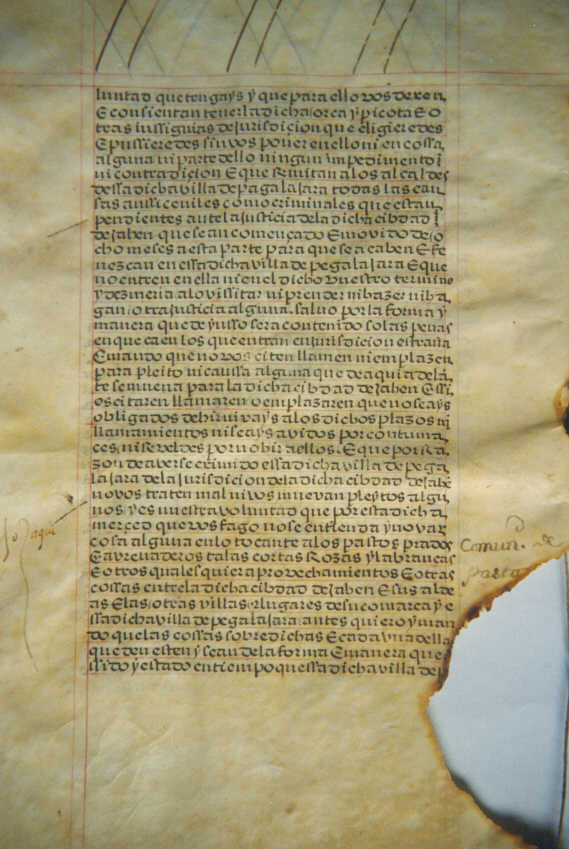 luntad que tengays y que para ello vos dexen
E consientan tener la dicha forca y picota E o
tras inssignias de jurisdiçion que eligieredes
E pussieredes sin vos poner en ello ni en cossa
alguna ni parte dello ningun inpedimento
ni contradiçion E que Remitan a los alcaldes
dessa dicha villa de pegalajara todas las cau
sas assi ceviles como criminales que estan
pendientes ante la justicia de la dicha cibdad
de jahen que se an començado E movido de o
cho meses a esta parte para que se acaben E fe
nezcan en essa dicha villa de pegalajara E que
no entren en ella ni en el dicho vuestro termino
y dezmeria a lo vissitar ni prender ni hazer ni ha
gan otra justicia alguna salvo por la forma y
manera que de yusso sera contenido so las penas
en que caen los que entran en jurisdicion estraña
E mando que no vos citen llamen ni enplazen
para pleito ni caussa alguna que de aqui adela
te se mueva para la dicha cibdad de jahen E ssi
os citaren llamaren o enplazaren que no seays
obligados de hir ni vays a los dichos plazos ni
llamamientos ni seays avidos por contuma
ces ni Reveldes por no hir a ellos. E que por Ra
zon de averse eximido essa dicha villa de pega
lajara de la jurisdicion de la dicha cibdad de jahe
no vos traten mal ni vos muevan pleytos algu
nos y es nuestra voluntad que por esta dicha
merced que vos fago no se entienda ynovar
cosa alguna en lo tocante a los pastos prados
E abrevaderos talas cortas Rozas y labranças
E otros qualesquiera aprovechamientos E otras
cossas entre la dicha cibdad de jahen E sus alde
as E las otras villas E lugares de su comarca y e
ssa dicha villa de pegalajara antes quiero y man
do que las cossas sobredichas E cada una della
que den esten y sean de la forma E manera que
a sido y estado en tiempo que essa dicha villa de
Comun. de
pastos